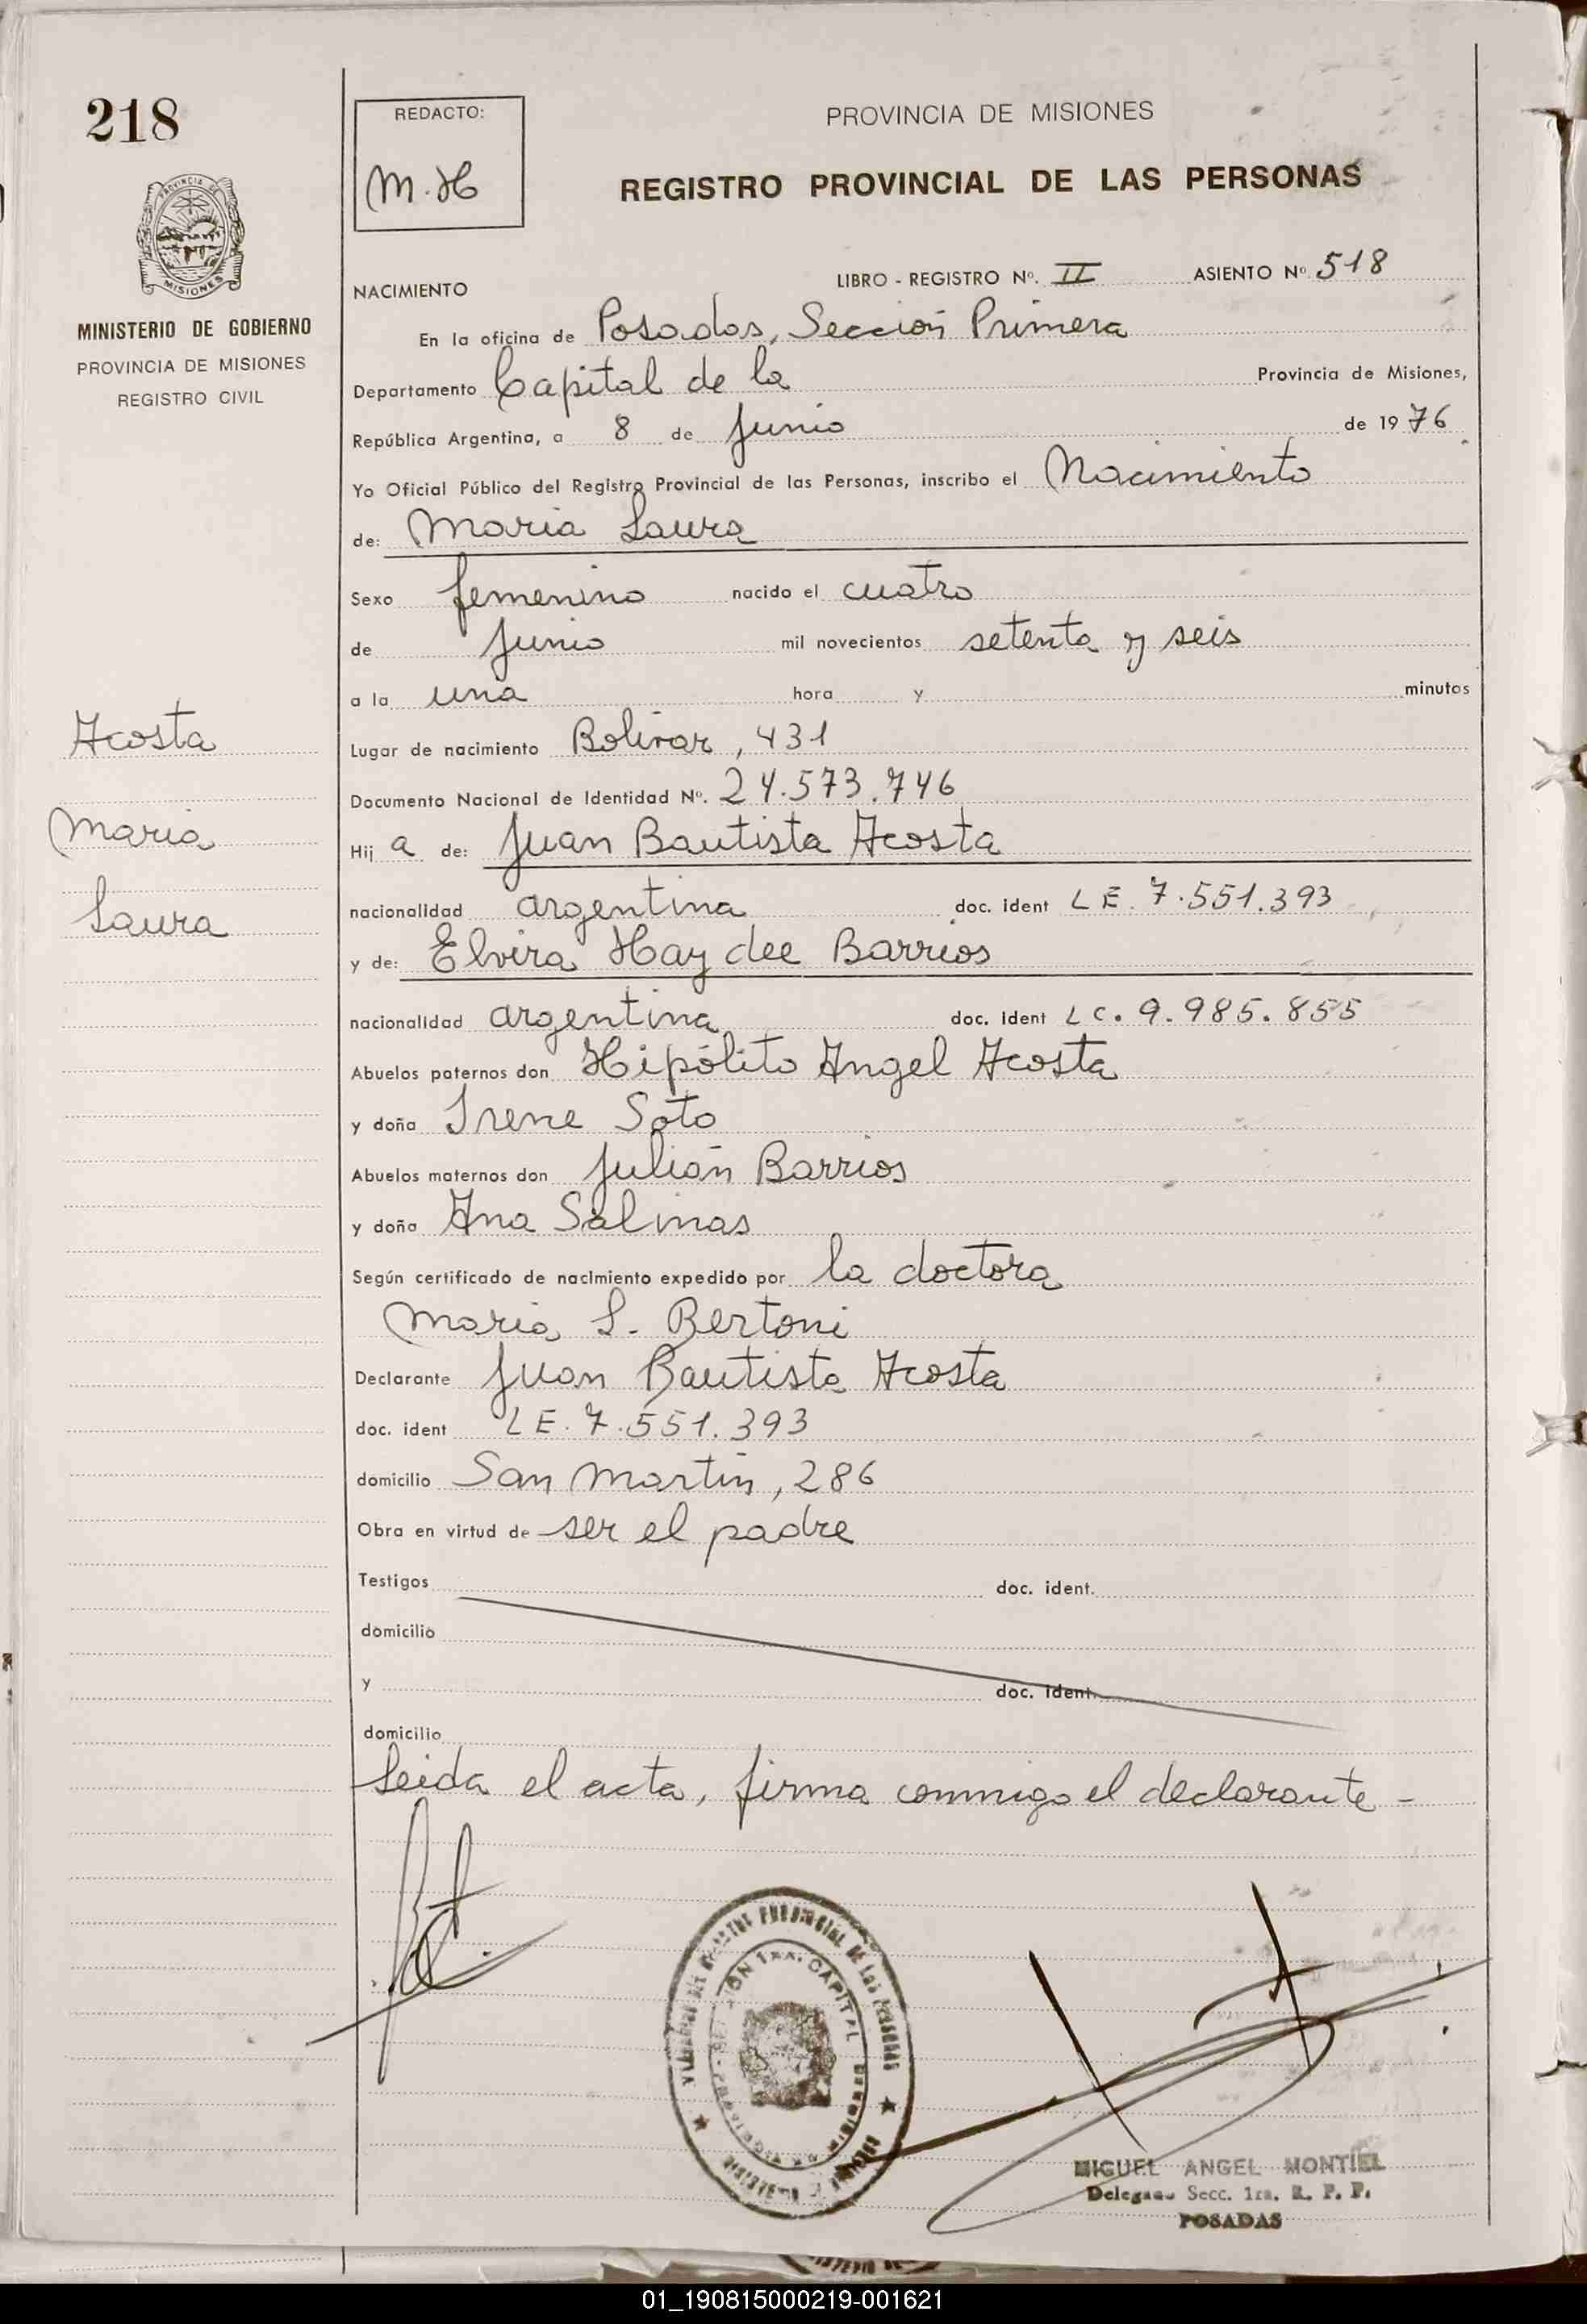 218
REDACTO:
M.H
PROVINCIA DE MISIONES
REGISTRO PROVINCIAL DE LAS PERSONAS
PROVINCIA DE
MISIONES
MINISTERIO DE GOBIERNO
PROVINCIA DE MISIONES
REGISTRO CIVIL
NACIMIENTO LIBRO - REGISTRO Nº. II ASIENTO Nº 518
En la oficina de Posadas, Sección Primera
Departamento Capital de la Provincia de Misiones,
República Argentina, a 8 de Junio de 1976
Yo Oficial Público del Registro Provincial de las Personas, inscribo el Nacimiento
de: Maria Laura
Sexo femenino nacido el cuatro
de Junio mil novecientos setenta y seis
a la una hora y minutos
Acosta
Maria
Laura
Lugar de nacimiento Bolivar, 431
Documento Nacional de Identidad Nº. 24.573.746
Hij a de: Juan Bautista Acosta
nacionalidad argentina doc. ident LE. 7.551.393
y de: Elvira Haydee Barrios
nacionalidad argentina doc. ident LC. 9.985.855
Abuelos paternos don Hipólito Angel Acosta
y doña Irene Soto
Abuelos maternos don Julián Barrios
y doña Ana Salinas
Según certificado de nacimiento expedido por la doctora
Maria L. Bertoni
Declarante Juan Bautista Acosta
doc. ident LE. 7.551.393
domicilio San Martin, 286
Obra en virtud de ser el padre
Testigos doc. ident.
domicilio
y doc. ident.
domicilio
Leida el acta, firma conmigo el declarante -
CAPITAL
MIGUEL ANGEL MONTIEL
Delegado Secc. 1ra. R. P. P.
POSADAS
01_190815000219-001621